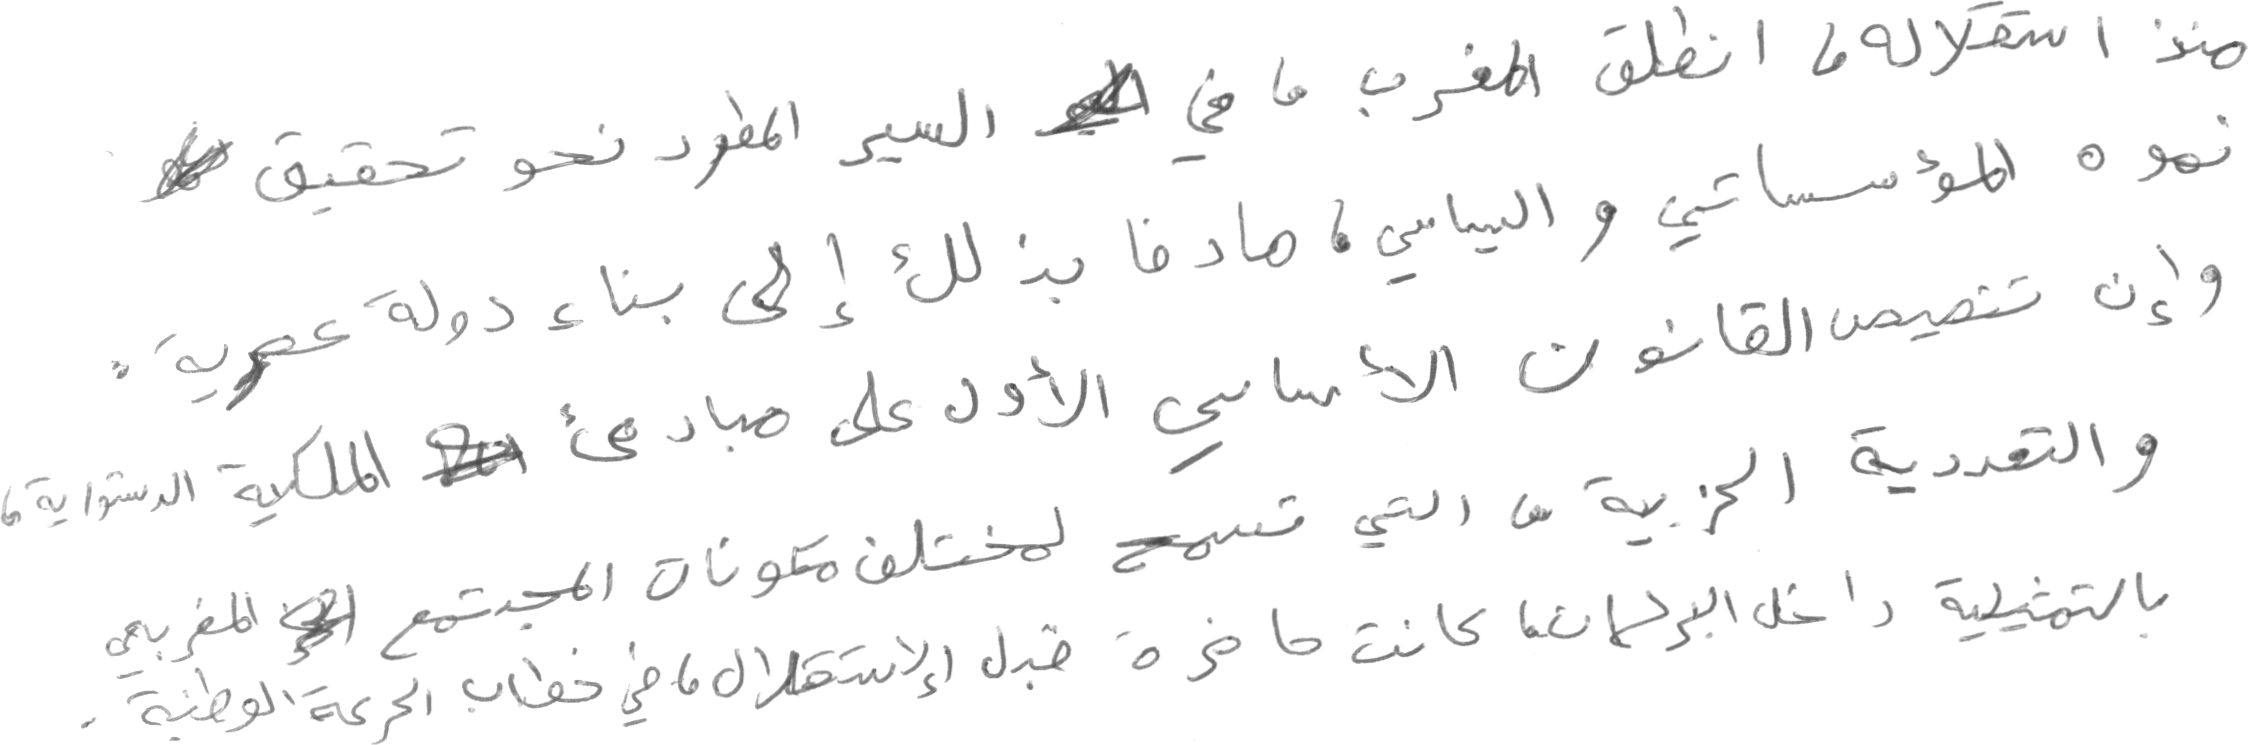 منذ استقلاله، انطلق المغرب، في السير المطرد نحو تحقيق
نموه المؤسساتي والسياسي، هادفا بذلك إلى بناء دولة عصرية.
وإن تنصيص القانون الأساسي الأول على مبادئ الملكية الدستورية،
والتعددية الحزبية، التي تسمح لمختلف مكونات المجتمع المغربي
بالتمثيلية داخل البرلمان، كانت حاضرة قبل الإستقلال، في خطاب الحركة الوطنية.